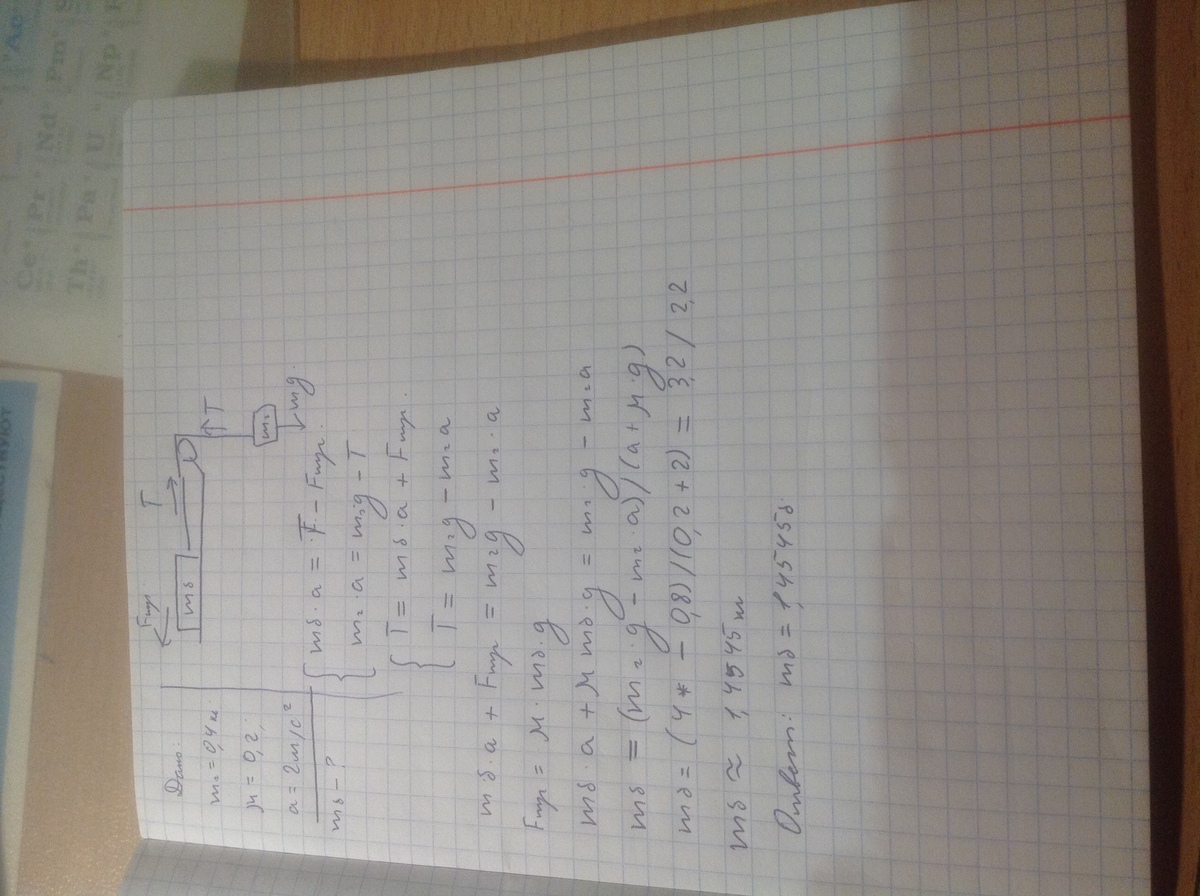 Дано:
m₂ = 0,4 кг
μ = 0,2
a = 2 м/с²
mб - ?
Fтр
T
mб
T
m₂
mg
mб · a = T - Fтр.
m₂ · a = m₂g - T
T = mб · a + Fтр.
T = m₂g - m₂a
mб · a + Fтр = m₂g - m₂ · a
Fтр = μ · mб · g
mб · a + μ mб · g = m₂ · g - m₂a
mб = (m₂ · g - m₂ · a) / (a + μ · g)
mб = (4* - 0,8) / (0,2 + 2) = 3,2 / 2,2
mб ≈ 1,4545 кг
Ответ: mб = 1,4545
Ce
Pr
Nd
Pm
Th
Pa
U
Np
Ac